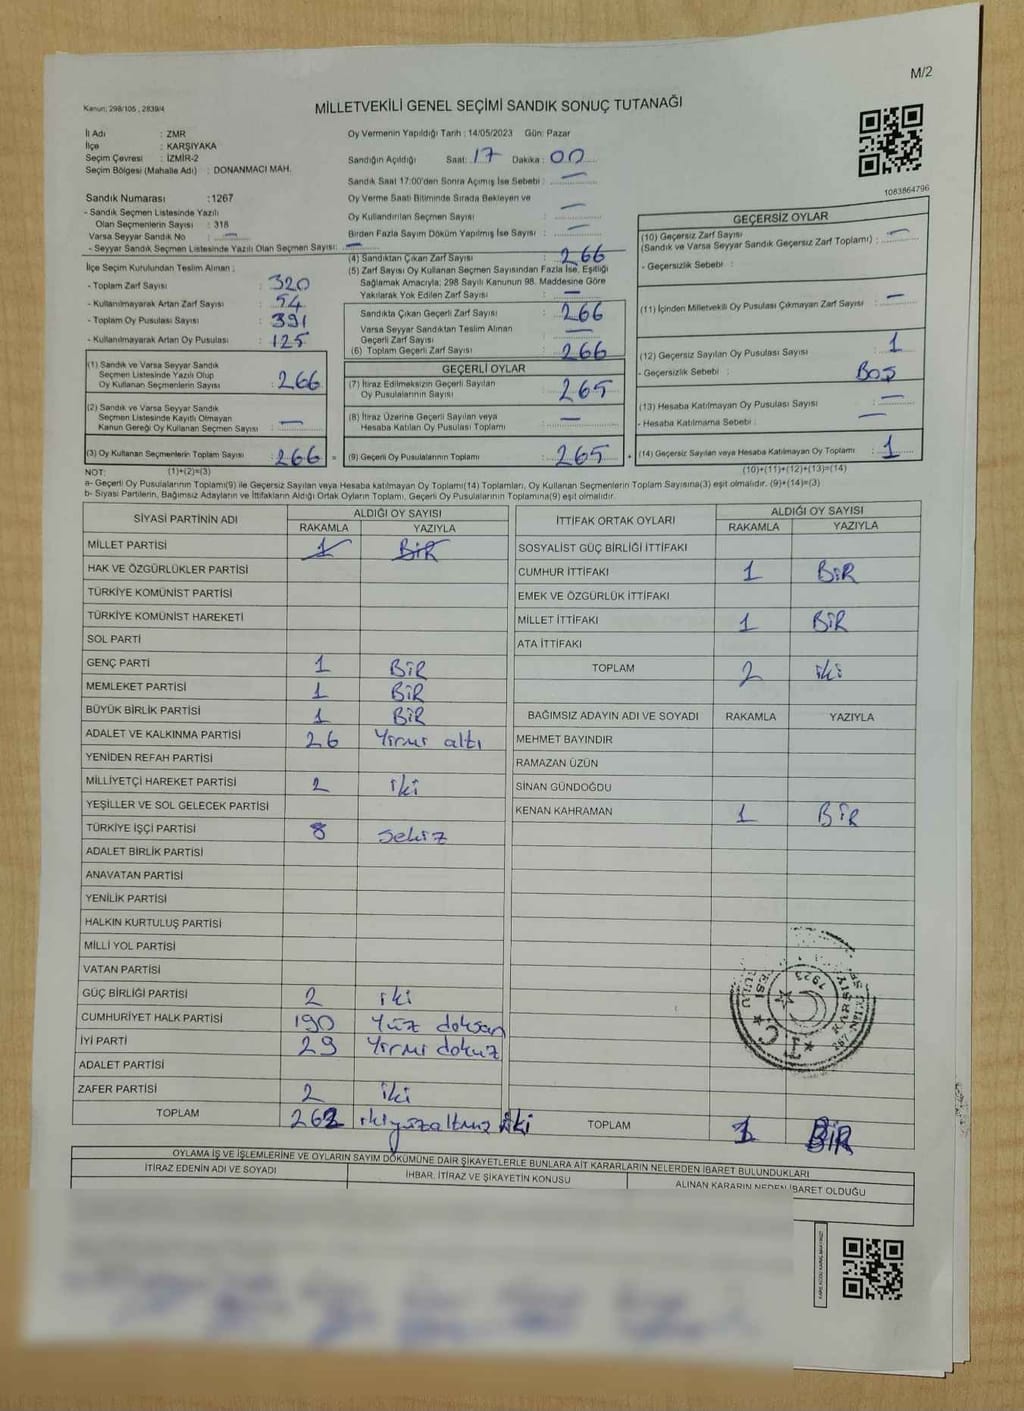 M/2
Kanun: 298/105 , 2839/4
MİLLETVEKİLİ GENEL SEÇİMİ SANDIK SONUÇ TUTANAĞI
İl Adı : ZMR
İlçe : KARŞIYAKA
Seçim Çevresi : İZMİR-2
Seçim Bölgesi (Mahalle Adı) : DONANMACI MAH.
Oy Vermenin Yapıldığı Tarih : 14/05/2023 Gün: Pazar
Sandığın Açıldığı Saat: 17 Dakika : 00
Sandık Saat 17:00'den Sonra Açımış İse Sebebi : —
Oy Verme Saati Bitiminde Sırada Bekleyen ve
Oy Kullandırılan Seçmen Sayısı : —
Birden Fazla Sayım Döküm Yapılmış İse Sayısı : —
1083864796
Sandık Numarası : 1267
- Sandık Seçmen Listesinde Yazılı
Olan Seçmenlerin Sayısı : 318
Varsa Seyyar Sandık No : —
- Seyyar Sandık Seçmen Listesinde Yazılı Olan Seçmen Sayısı: —
İlçe Seçim Kurulundan Teslim Alınan ;
- Toplam Zarf Sayısı : 320
- Kullanılmayarak Artan Zarf Sayısı : 54
- Toplam Oy Pusulası Sayısı : 391
- Kullanılmayarak Artan Oy Pusulası : 125
(1) Sandık ve Varsa Seyyar Sandık
Seçmen Listesinde Yazılı Olup
Oy Kullanan Seçmenlerin Sayısı : 266
(2) Sandık ve Varsa Seyyar Sandık
Seçmen Listesinde Kayıtlı Olmayan
Kanun Gereği Oy Kullanan Seçmen Sayısı : —
(3) Oy Kullanan Seçmenlerin Toplam Sayısı : 266 =
(4) Sandıktan Çıkan Zarf Sayısı : 266
(5) Zarf Sayısı Oy Kullanan Seçmen Sayısından Fazla İse, Eşitliği
Sağlamak Amacıyla; 298 Sayılı Kanunun 98. Maddesine Göre
Yakılarak Yok Edilen Zarf Sayısı : —
Sandıkta Çıkan Geçerli Zarf Sayısı : 266
Varsa Seyyar Sandıktan Teslim Alınan
Geçerli Zarf Sayısı : —
(6) Toplam Geçerli Zarf Sayısı : 266
GEÇERLİ OYLAR
(7) İtiraz Edilmeksizin Geçerli Sayılan
Oy Pusulalarının Sayısı : 265
(8) İtiraz Üzerine Geçerli Sayılan veya
Hesaba Katılan Oy Pusulası Toplamı : —
(9) Geçerli Oy Pusulalarının Toplamı : 265 +
GEÇERSİZ OYLAR
(10) Geçersiz Zarf Sayısı
(Sandık ve Varsa Seyyar Sandık Geçersiz Zarf Toplamı) : —
- Geçersizlik Sebebi :
(11) İçinden Milletvekili Oy Pusulası Çıkmayan Zarf Sayısı : —
(12) Geçersiz Sayılan Oy Pusulası Sayısı : 1
- Geçersizlik Sebebi : Boş
(13) Hesaba Katılmayan Oy Pusulası Sayısı : —
- Hesaba Katılmama Sebebi : —
(14) Geçersiz Sayılan veya Hesaba Katılmayan Oy Toplamı : 1
NOT: (1)+(2)=(3) (10)+(11)+(12)+(13)=(14)
a- Geçerli Oy Pusulalarının Toplamı(9) ile Geçersiz Sayılan veya Hesaba katılmayan Oy Toplamı(14) Toplamları, Oy Kullanan Seçmenlerin Toplam Sayısına(3) eşit olmalıdır. (9)+(14)=(3)
b- Siyasi Partilerin, Bağımsız Adayların ve İttifakların Aldığı Ortak Oyların Toplamı, Geçerli Oy Pusulalarının Toplamına(9) eşit olmalıdır.
SİYASİ PARTİNİN ADI ALDIĞI OY SAYISI
RAKAMLA YAZIYLA
MİLLET PARTİSİ 1 BİR
HAK VE ÖZGÜRLÜKLER PARTİSİ
TÜRKİYE KOMÜNİST PARTİSİ
TÜRKİYE KOMÜNİST HAREKETİ
SOL PARTİ
GENÇ PARTİ 1 BİR
MEMLEKET PARTİSİ 1 BİR
BÜYÜK BİRLİK PARTİSİ 1 BİR
ADALET VE KALKINMA PARTİSİ 26 Yirmi altı
YENİDEN REFAH PARTİSİ
MİLLİYETÇİ HAREKET PARTİSİ 2 iki
YEŞİLLER VE SOL GELECEK PARTİSİ
TÜRKİYE İŞÇİ PARTİSİ 8 sekiz
ADALET BİRLİK PARTİSİ
ANAVATAN PARTİSİ
YENİLİK PARTİSİ
HALKIN KURTULUŞ PARTİSİ
MİLLİ YOL PARTİSİ
VATAN PARTİSİ
GÜÇ BİRLİĞİ PARTİSİ 2 iki
CUMHURİYET HALK PARTİSİ 190 Yüz doksan
İYİ PARTİ 29 Yirmi dokuz
ADALET PARTİSİ
ZAFER PARTİSİ 2 iki
TOPLAM 262 ikiyüzaltmış iki
İTTİFAK ORTAK OYLARI ALDIĞI OY SAYISI
RAKAMLA YAZIYLA
SOSYALİST GÜÇ BİRLİĞİ İTTİFAKI
CUMHUR İTTİFAKI 1 BİR
EMEK VE ÖZGÜRLÜK İTTİFAKI
MİLLET İTTİFAKI 1 BİR
ATA İTTİFAKI
TOPLAM 2 iki
BAĞIMSIZ ADAYIN ADI VE SOYADI RAKAMLA YAZIYLA
MEHMET BAYINDIR
RAMAZAN ÜZÜN
SİNAN GÜNDOĞDU
KENAN KAHRAMAN 1 BİR
T.C.
1923
TOPLAM 1 BİR
OYLAMA İŞ VE İŞLEMLERİNE VE OYLARIN SAYIM DÖKÜMÜNE DAİR ŞİKAYETLERLE BUNLARA AİT KARARLARIN NELERDEN İBARET BULUNDUKLARI
İTİRAZ EDENİN ADI VE SOYADI İHBAR, İTİRAZ VE ŞİKAYETİN KONUSU ALINAN KARARIN NEDEN İBARET OLDUĞU